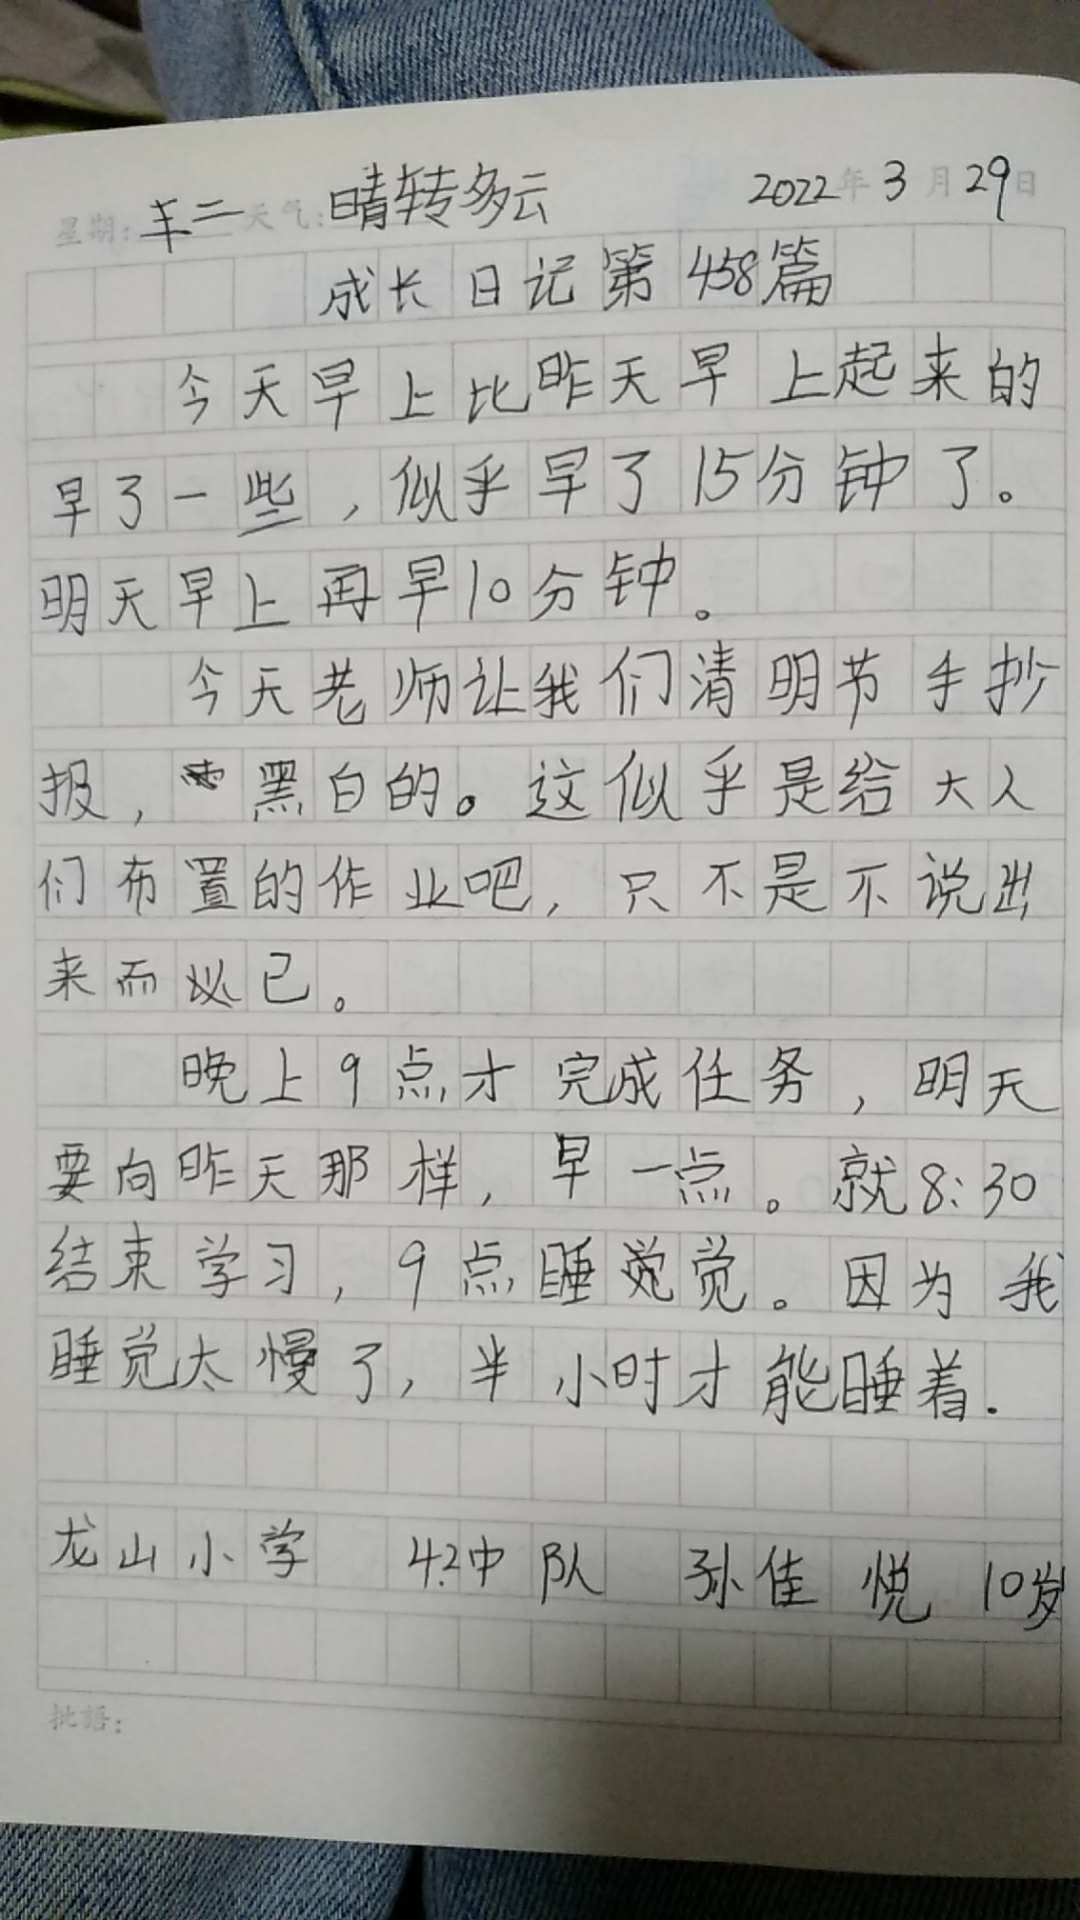 星期: 二 天气: 晴转多云 2022年3月29日
成长日记第458篇
今天早上比昨天早上起来的
早了一些，似乎早了15分钟了。
明天早上再早10分钟。
今天老师让我们清明节手抄
报，黑白的。这似乎是给大人
们布置的作业吧，只不是不说出
来而以已。
晚上9点才完成任务，明天
要向昨天那样，早一点。就8:30
结束学习，9点睡觉觉。因为我
睡觉太慢了，半小时才能睡着.
龙山小学 4.2中队 孙佳悦 10岁
批語: